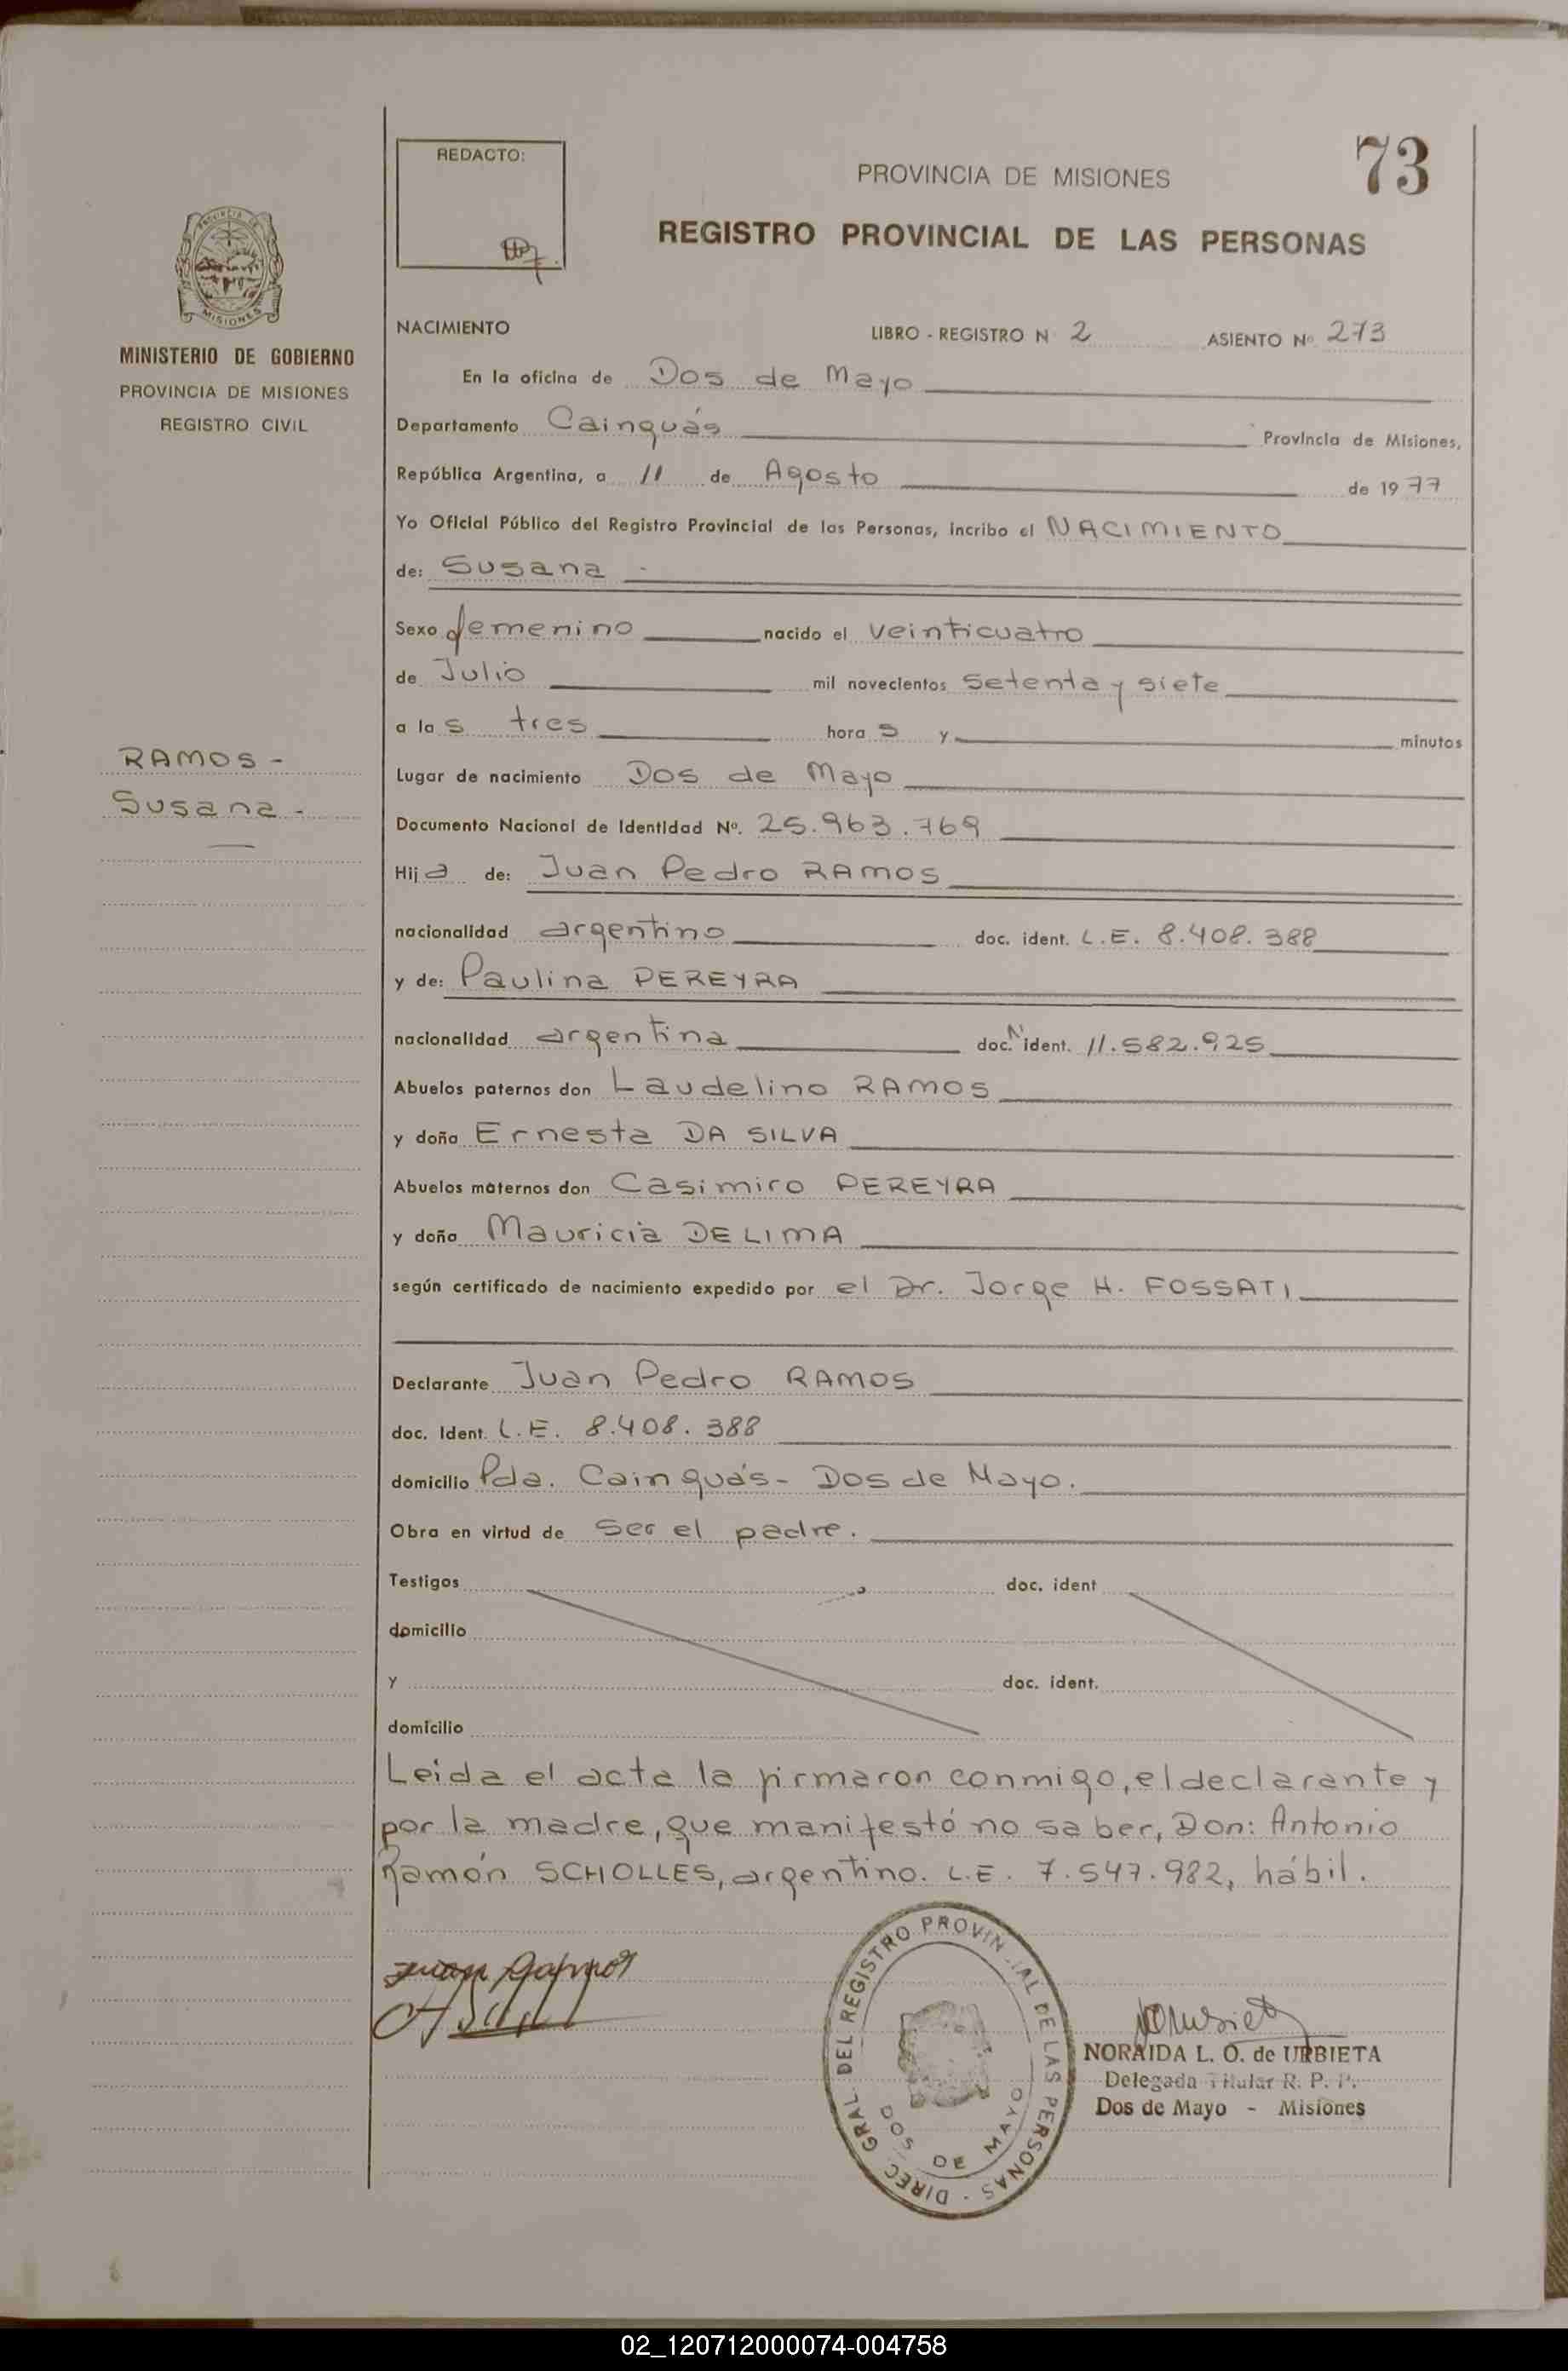 73
REDACTO:
PROVINCIA DE MISIONES
REGISTRO PROVINCIAL DE LAS PERSONAS
PROVINCIA DE
MISIONES
MINISTERIO DE GOBIERNO
PROVINCIA DE MISIONES
REGISTRO CIVIL
NACIMIENTO LIBRO - REGISTRO N 2 ASIENTO Nº 273
En la oficina de Dos de Mayo
Departamento Cainguás Provincia de Misiones,
República Argentina, a 11 de Agosto de 1977
Yo Oficial Público del Registro Provincial de las Personas, incribo el NACIMIENTO
de: Susana
Sexo femenino nacido el veinticuatro
de Julio mil novecientos setenta y siete
a las tres horas y minutos
RAMOS -
Susana -
Lugar de nacimiento Dos de Mayo
Documento Nacional de Identidad Nº. 25.963.769
Hija de: Juan Pedro RAMOS
nacionalidad argentino doc. ident. L.E. 8.408.388
y de: Paulina PEREYRA
nacionalidad argentina doc. N' ident. 11.582.925
Abuelos paternos don Laudelino RAMOS
y doña Ernesta DA SILVA
Abuelos maternos don Casimiro PEREYRA
y doña Mauricia DE LIMA
según certificado de nacimiento expedido por el Dr. Jorge H. FOSSATI
Declarante Juan Pedro RAMOS
doc. Ident. L.E. 8.408.388
domicilio Pda. Cainguás - Dos de Mayo.
Obra en virtud de ser el padre.
Testigos doc. ident
domicilio
y doc. ident.
domicilio
Leida el acta la firmaron conmigo, el declarante y
por la madre, que manifestó no saber, Don: Antonio
Ramón SCHOLLES, argentino. L.E. 7.547.982, hábil.
Juan Ramos
DIREC. GRAL. DEL REGISTRO PROVINCIAL DE LAS PERSONAS -
DOS DE MAYO
NORAIDA L. O. de URBIETA
Delegada Titular R. P. P.
Dos de Mayo - Misiones
02_120712000074-004758